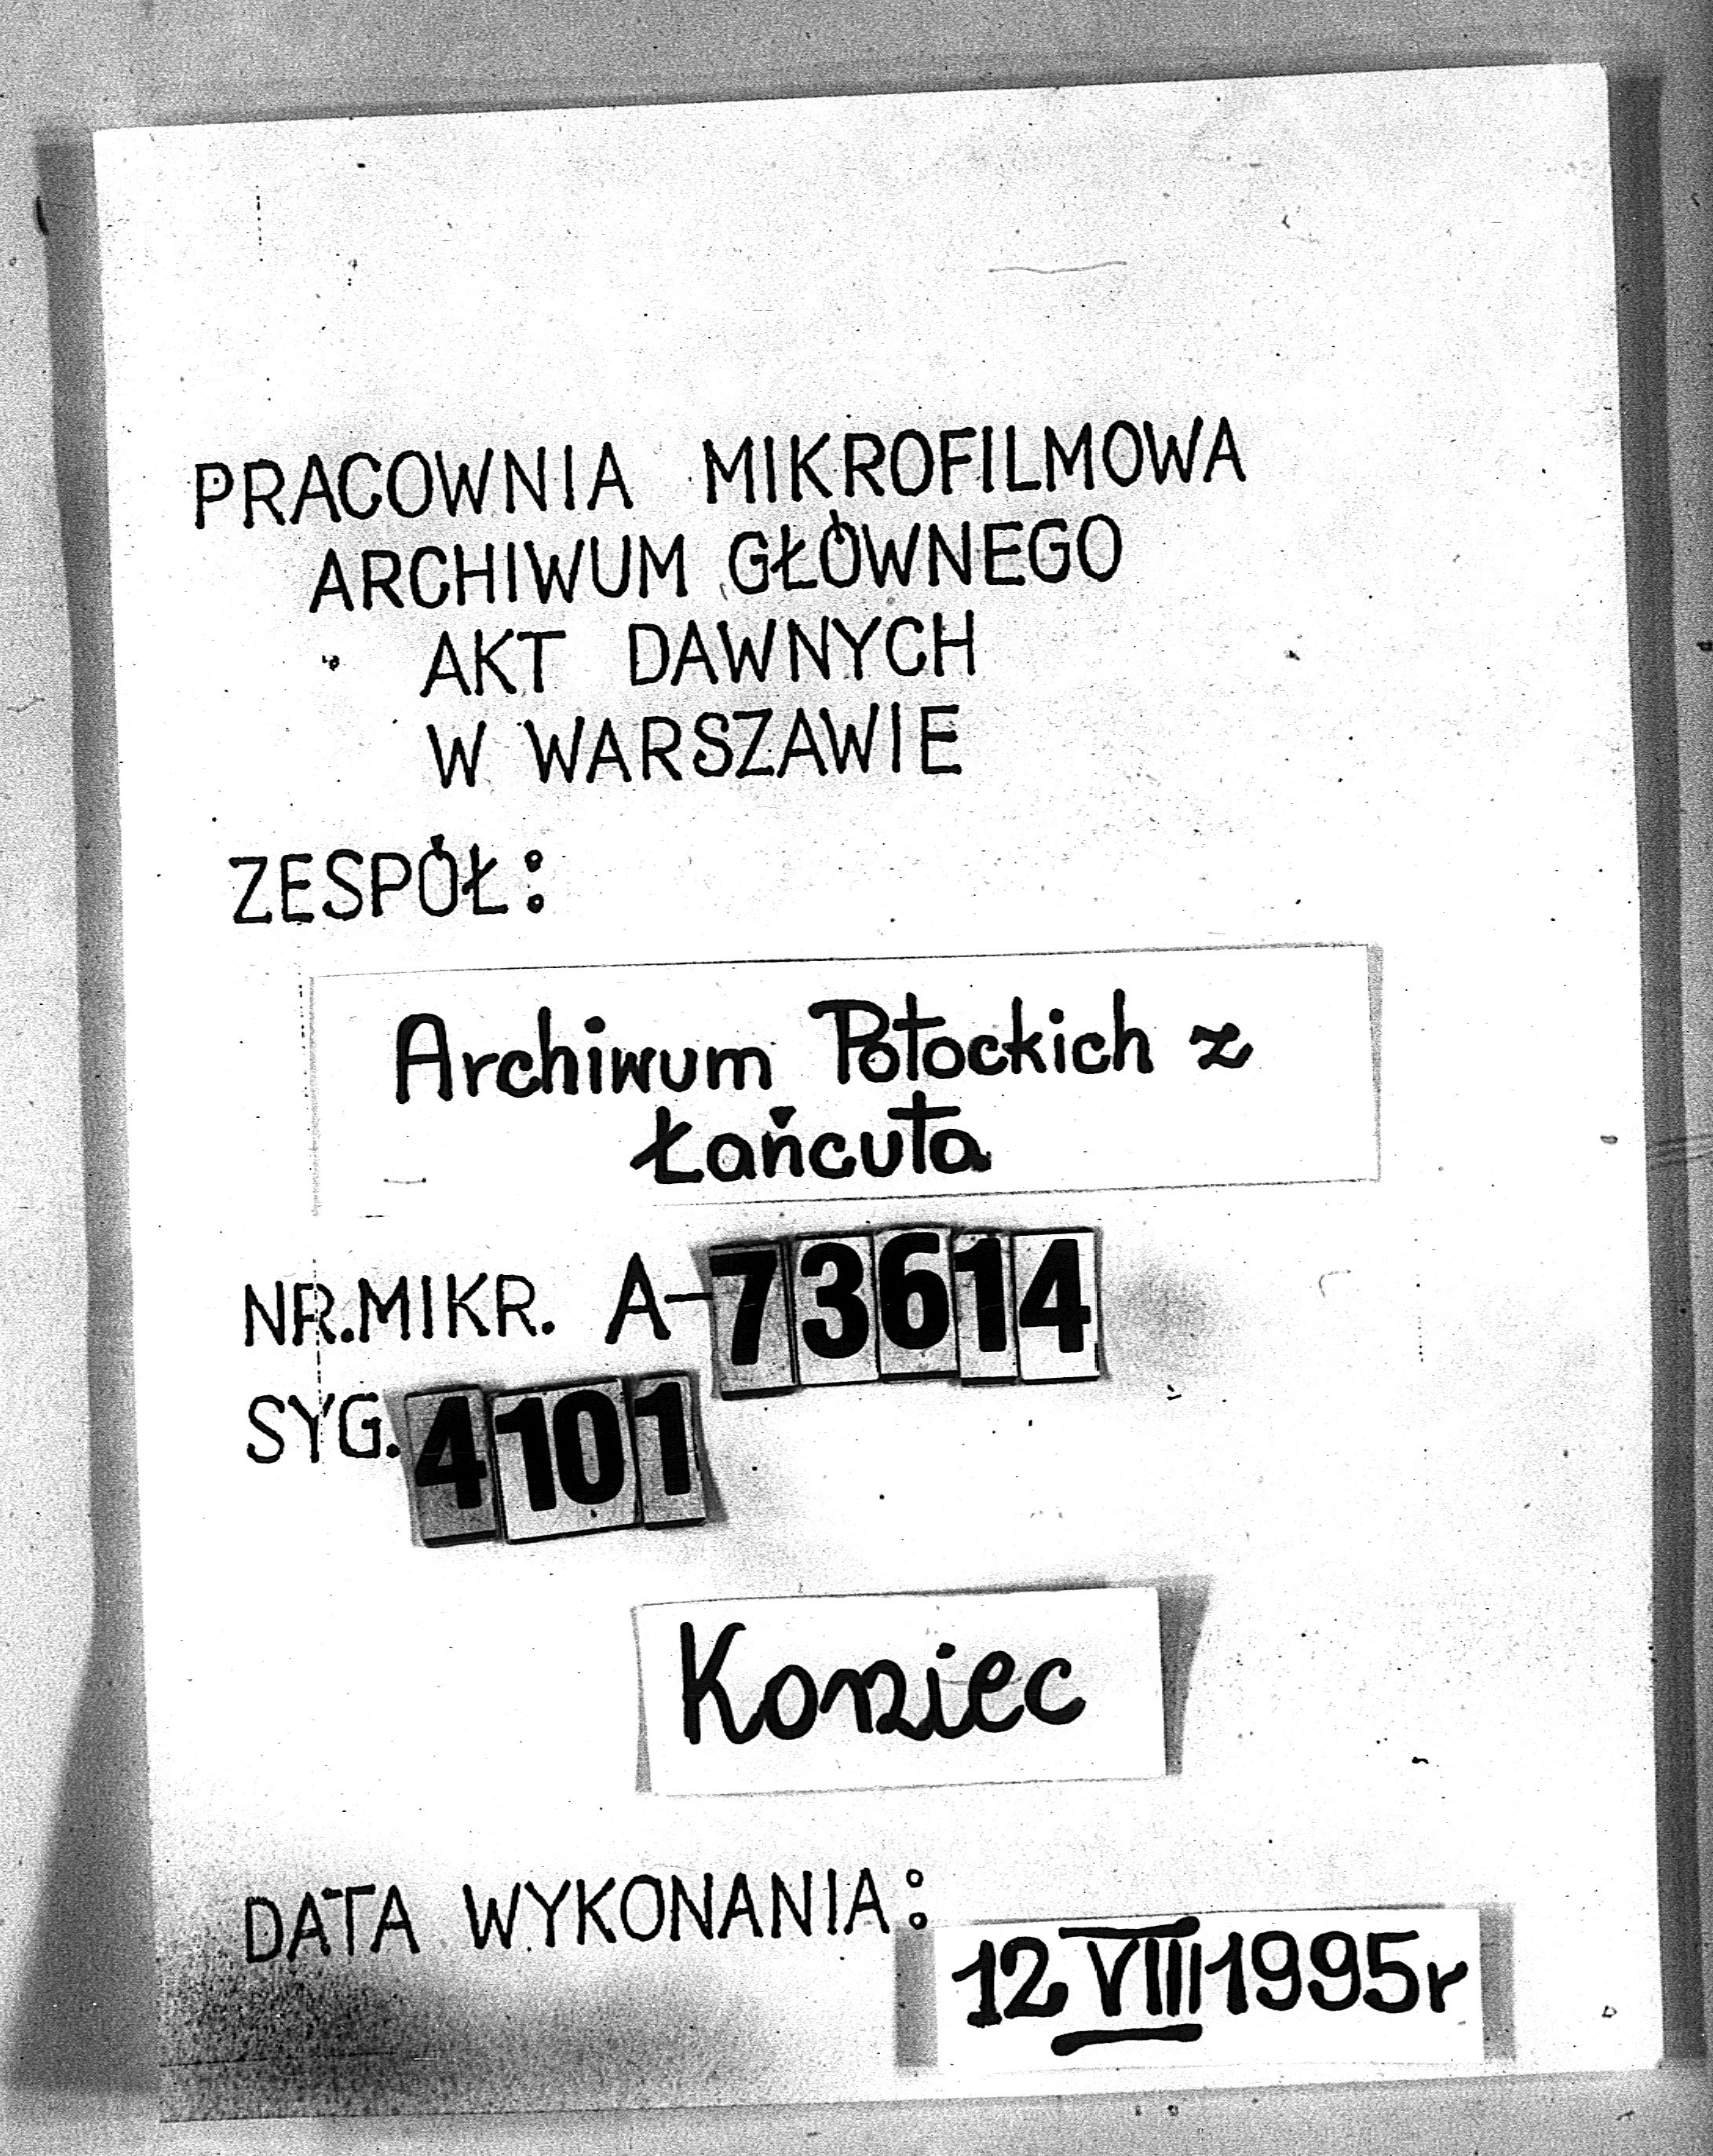 PRACOWNIA MIKROFILMOWA
ARCHIWUM GŁÓWNEGO
AKT DAWNYCH
W WARSZAWIE
ZESPÓŁ:
Archiwum Potockich z
Łańcuta
NR.MIKR. A-73614
SYG. 4101
Koniec
DATA WYKONANIA:
12 VIII 1995r